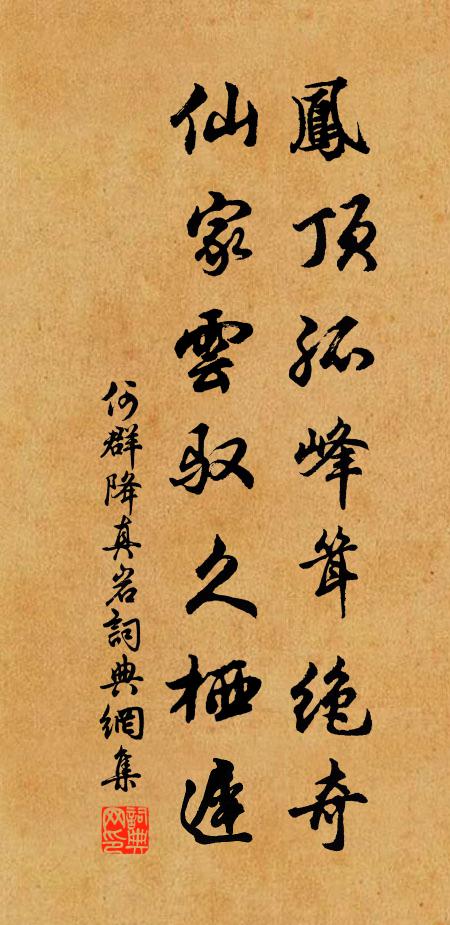 鳳頂孤峰聳絕奇
仙家雲馭久栖遲
何群降真岩詞典網集
詞典网印